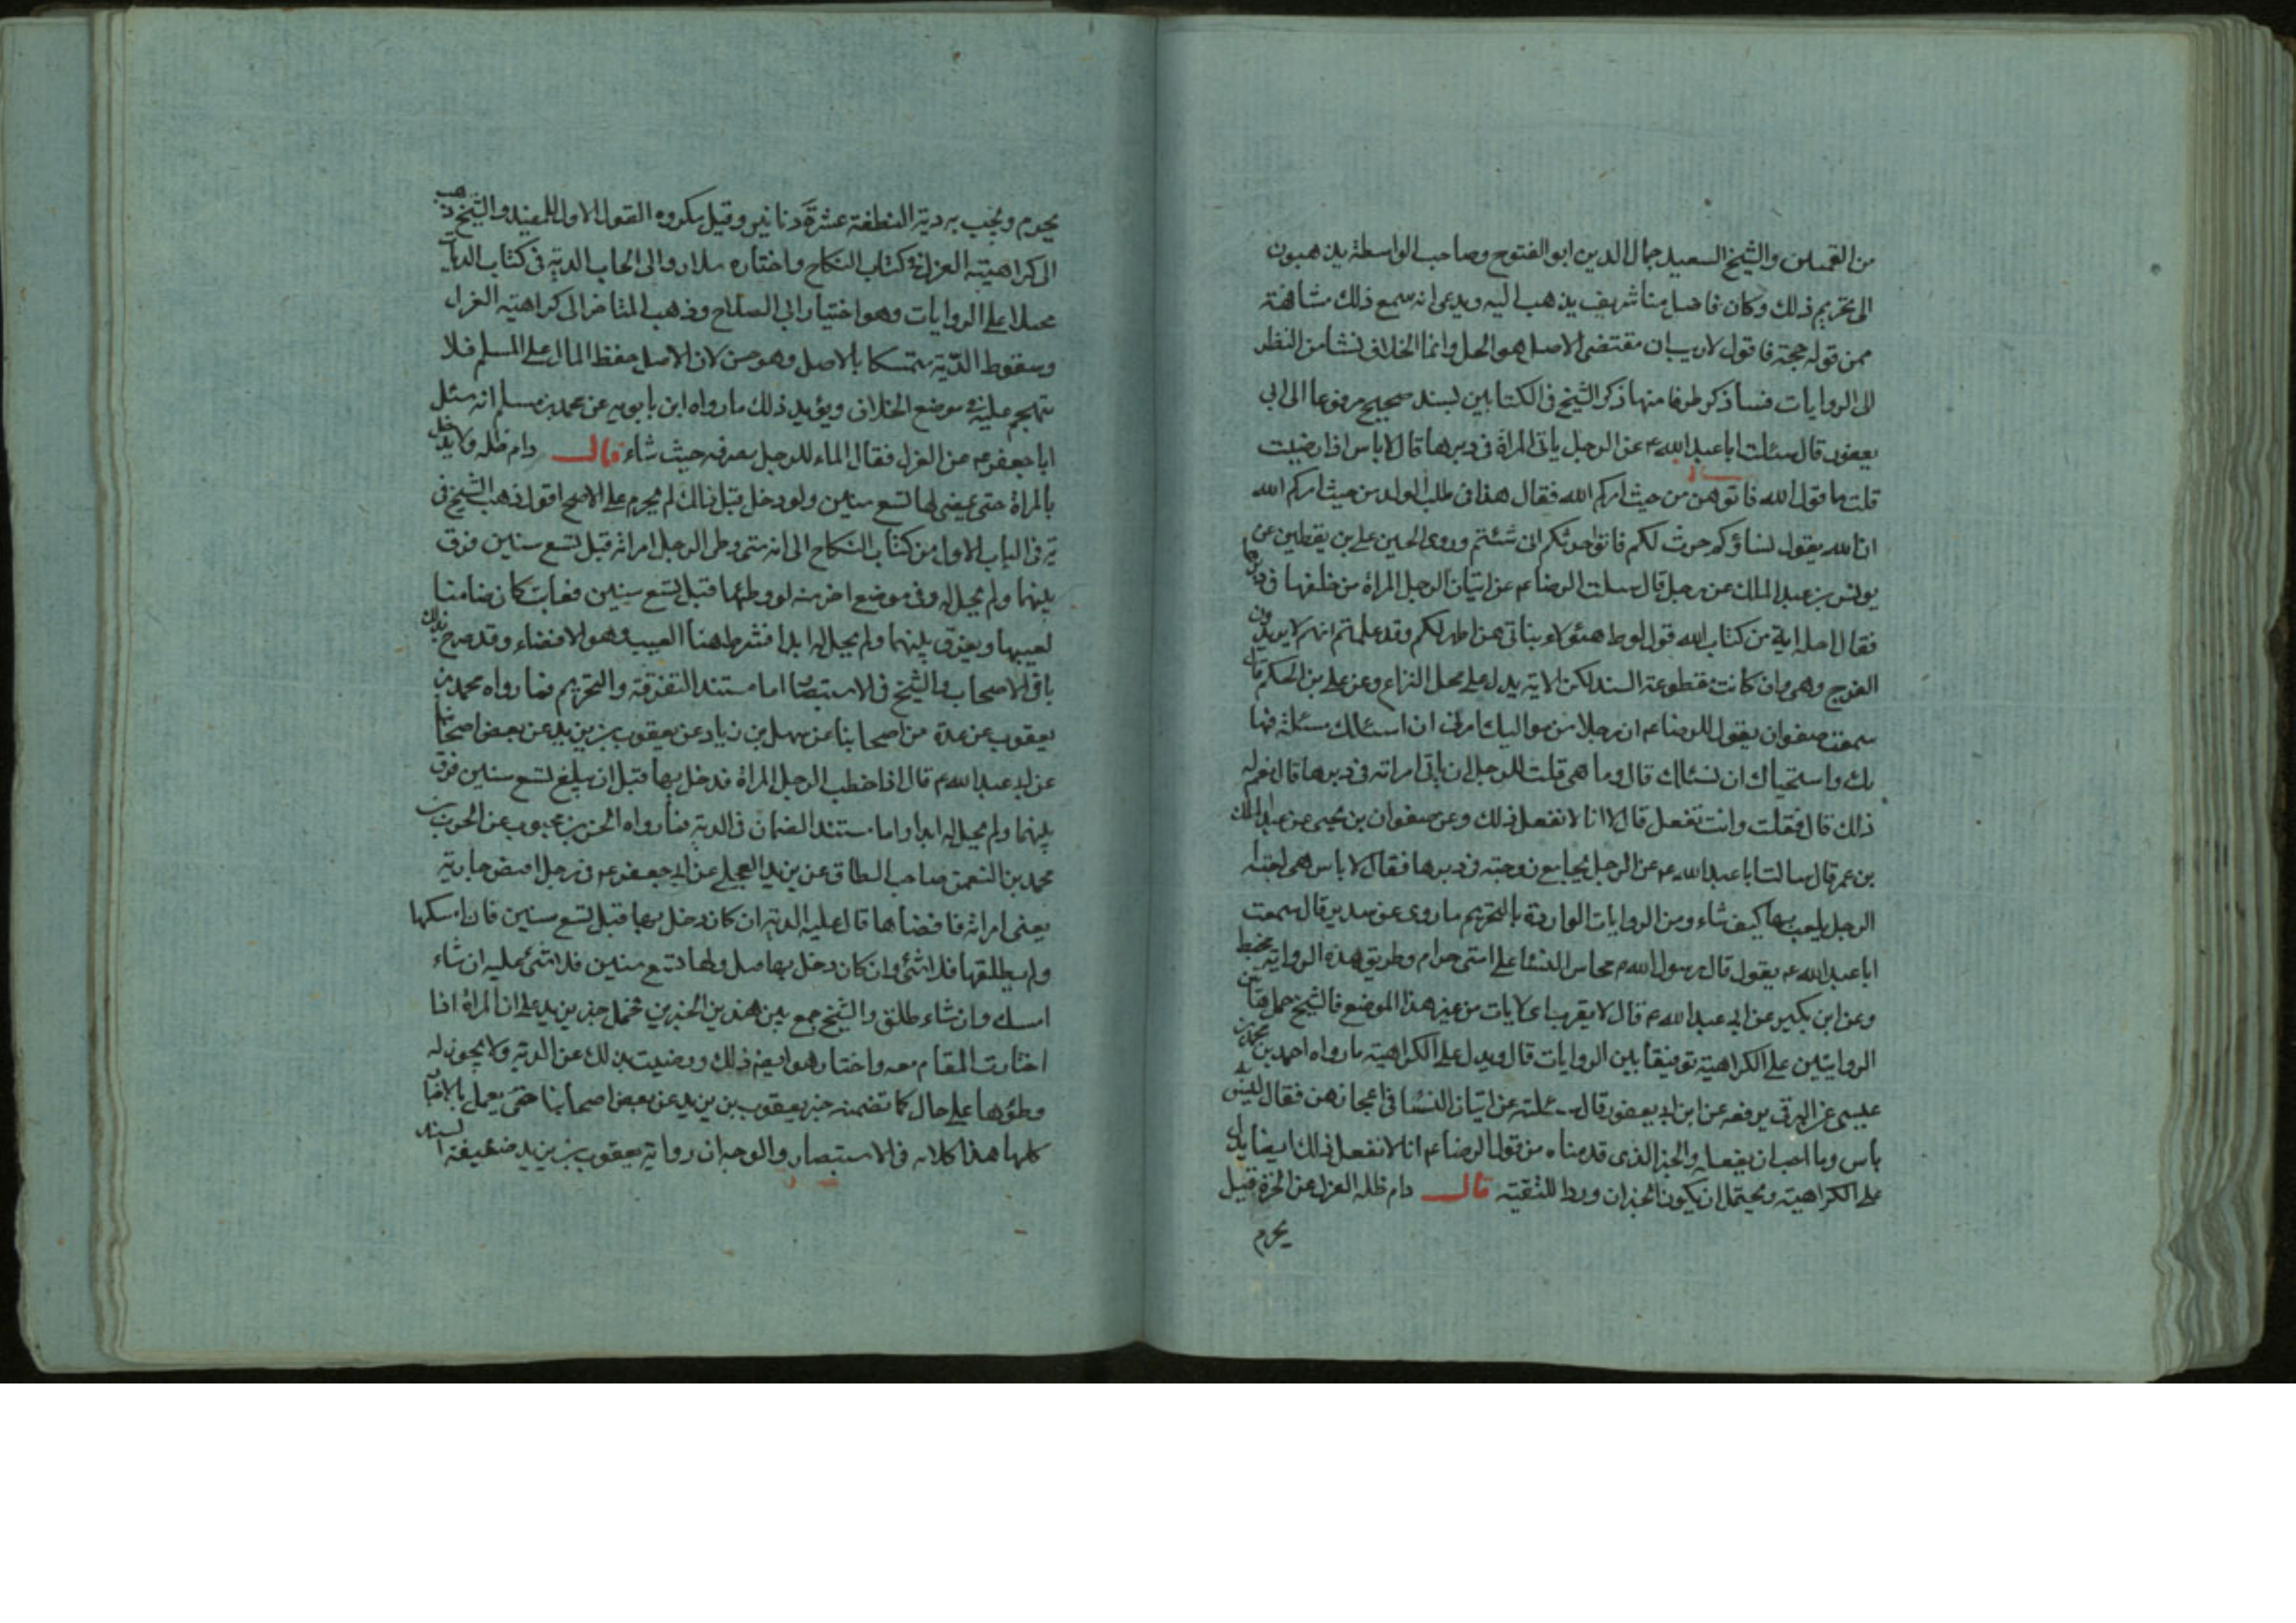 من القميين والشيخ السعيد جمال الدين ابو الفتوح وصاحب الواسطة يذهبون
الى تحريم ذلك وكان فاضل منا شريف يذهب اليه ويدعى انه سمع ذلك مشافهة
ممن قوله حجة فاقول لا ريب ان مقتضى الاصل هو الحل وانما الخلاف نشا من النظر
الى الروايات فسأذكر طرفا منها ذكر الشيخ فى الكتابين بسند صحيح مرفوعا الى ابى
يعفور قال سئلت ابا عبد الله ع عن الرجل ياتى المراة فى دبرها قال لا باس اذا رضيت
قلت ما قول الله فاتوهن من حيث امركم الله فقال هذا فى طلب الولد من حيث امركم الله
ان الله يقول نساؤكم حرث لكم فاتوا حرثكم انى شئتم وروى الحسين على بن يقطين عن
يونس بن عبد الملك عن رجل قال سئلت الرضا ع عن اتيان الرجل المراة من خلفها فى دبرها
فقال احله اية من كتاب الله قول لوط هئولاء بناتى هن اطهر لكم وقد علمتم انهم لا يريدون
الفرج وهى وان كانت مقطوعة السند لكن الاية يدل على محل النزاع وعن على بن الحكم قال
سمعت صفوان يقول للرضا ع ان رجلا من مواليك امرنى ان اسئلك مسئلة فها
بك واستحياك ان نسئلك قال وما هى قلت للرجل ان ياتى امراته فى دبرها قال نعم له
ذلك قال فقلت وانت تفعل قال لا انا لا نفعل ذلك وعن صفوان بن يحيى عن عبد الملك
بن عمر قال سالت ابا عبد الله ع عن الرجل يجامع زوجته فى دبرها فقال لا باس هى لعبة
الرجل يلعب بها كيف شاء ومن الروايات الواردة بالتحريم ما روى عن سدير قال سمعت
ابا عبد الله ع يقول قال رسول الله ص محاس النساء على امتى حرام وطريق هذه الرواية
وعن ابن بكير عن ابى عبد الله ع قال لا يقرب من غير هذا الموضع فالشيخ حمل هاتين
الروايتين على الكراهية توفيقا بين الروايات قال ويدل على الكراهية ما رواه احمد بن محمد بن
عيسى عن البرقى يرفعه عن ابن ابى يعفور قال سئلته عن اتيان النساء فى اعجازهن فقال ليس به
باس وما احب ان يفعله والخبر الذى قدمناه من قول الرضا ع انا لا نفعل ذلك ايضا يدل
على الكراهية ويحتمل ان يكون الخبران وردا للتقية قال دام ظله العزل عن الحرة قيل
يحرم
يحرم ويجب به دية النطفة عشرة دنانير وقيل مكروه القول الاول للمفيد والشيخ ذهب
الى كراهية العزل فى كتاب النكاح واختاره سلار والى ايجاب الدية فى كتاب الديات
عملا على الروايات وهو اختيار ابى الصلاح وذهب المتاخر الى كراهية العزل
وسقوط الدية متمسكا بالاصل وهو حسن لان الاصل حفظ المال على المسلم فلا
تهجم عليه فى موضع الخلاف ويؤيد ذلك ما رواه ابن بابويه عن محمد بن مسلم انه سئل
ابا جعفر ع عن العزل فقال الماء للرجل يصرفه حيث شاء قال دام ظله ولا يدخل
بالمراة حتى يمضى لها تسع سنين ولو دخل قبل ذلك لم يحرم على الاصح اقول ذهب الشيخ فى
ية فى الباب الاول من كتاب النكاح الى انه متى وطى الرجل امراته قبل تسع سنين فرق
بينهما ولم يحل له وفى موضع اخر منه لو وطئها قبل تسع سنين فعابت كان ضامنا
لعيبها ويفرق بينهما ولم يحل له ابدا فشرط هنا العيب وهو الافضاء وقد صرح بذلك
باقى الاصحاب والشيخ فى الاستبصار اما مستند التفرقة والتحريم فما رواه محمد بن
يعقوب عن عدة من اصحابنا عن سهل بن زياد عن يعقوب بن يزيد عن بعض اصحابنا
عن ابى عبد الله ع قال اذا خطب الرجل المراة فدخل بها قبل ان يبلغ تسع سنين فرق
بينهما ولم يحل له ابدا واما مستند الضمان فى الدية فما رواه الحسن بن محبوب عن الحرث بن
محمد بن النعمن صاحب الطاق عن بريد العجلى عن ابى جعفر ع فى رجل افتض جارية
يعنى امراته فافضاها قال عليه الدية ان كان دخل بها قبل تسع سنين فان امسكها
ولم يطلقها فلا شئ وان كان دخل بها ولها تسع سنين فلا شئ عليه ان شاء
امسك وان شاء طلق والشيخ جمع بين هذين الخبرين فحمل خبر بريد على ان المراة اذا
اختارت المقام معه واختار هو ايضا ذلك ورضيت بذلك عن الدية ولا يجوز له
وطؤها على حال كما تضمنه خبر يعقوب بن يزيد عن بعض اصحابنا حتى يعمل بالاخبار
كلها هذا كلامه فى الاستبصار والوجه ان رواية يعقوب بن يزيد ضعيفة السند